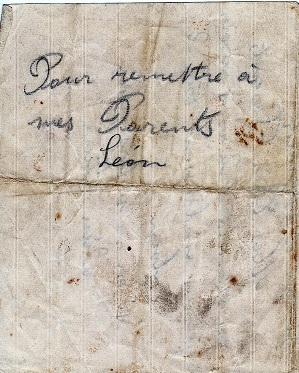 Pour remettre à
mes Parents
Léon